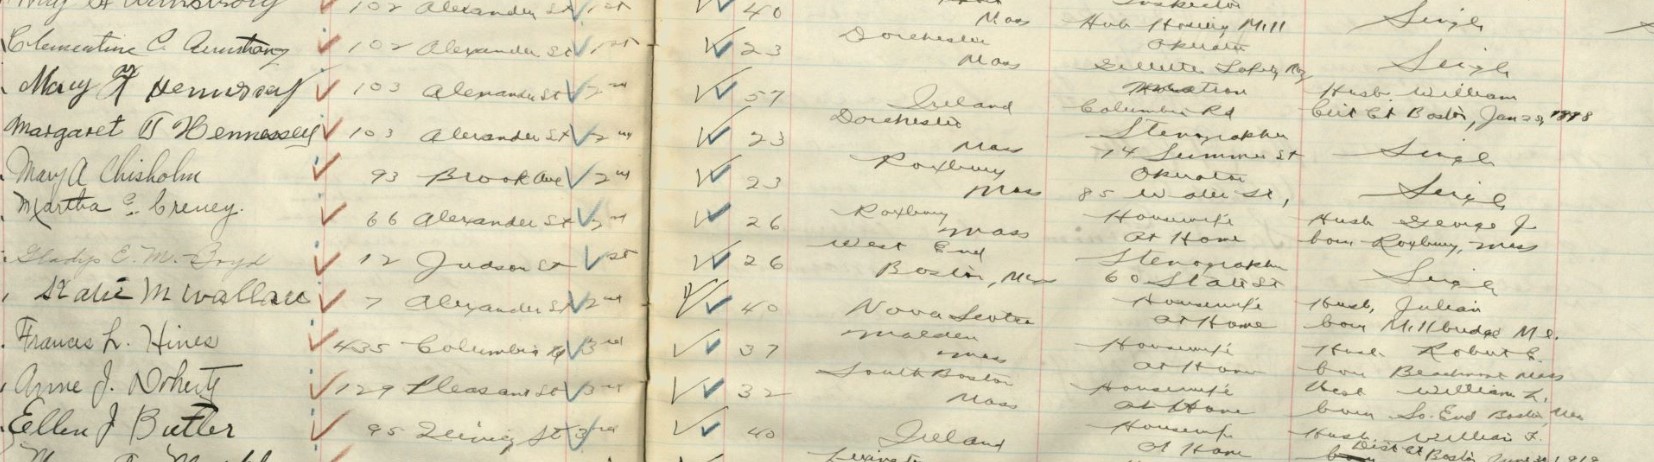 102 Alexander St 1st 40 Mass Inspector
Hub Hosiery Mill Single
Clementine C. Armstrong 102 Alexander St 1st 23 Dorchester Mass Operator
Gillette Safety Single
Mary F Hennessey 103 Alexander St 2nd 57 Ireland Husb. William
Columbia Rd Boston, Jan 1898
Margaret T Hennessey 103 Alexander St 2nd 23 Dorchester Mass Stenographer
74 Summer St Single
Mary A Chisholm 93 Brook Ave 2nd 23 Roxbury Mass Operator
85 Water St, Single
Martha C. Creney. 66 Alexander St 26 Roxbury Mass Housewife Husb George J.
at Home born Roxbury, Mass
Gladys E. M. Boyd 12 Judson St 1st 26 West End Boston, Mass Stenographer
60 State St Single
Katie M Wallace 7 Alexander St 2nd 40 Nova Scotia Housewife Husb. Julian
at Home born Millbridge Me.
Frances L. Hines 435 Columbia Rd 3rd 37 Malden Mass Housewife Husb. Robert E.
at Home born Beachmont Mass
Anne J. Doherty 129 Pleasant St 3rd 32 South Boston Mass Housewife William L.
at Home born So. End Boston, Mass
Ellen J Butler 95 St 3rd 40 Ireland Housewife Husb. William F.
at Home Boston